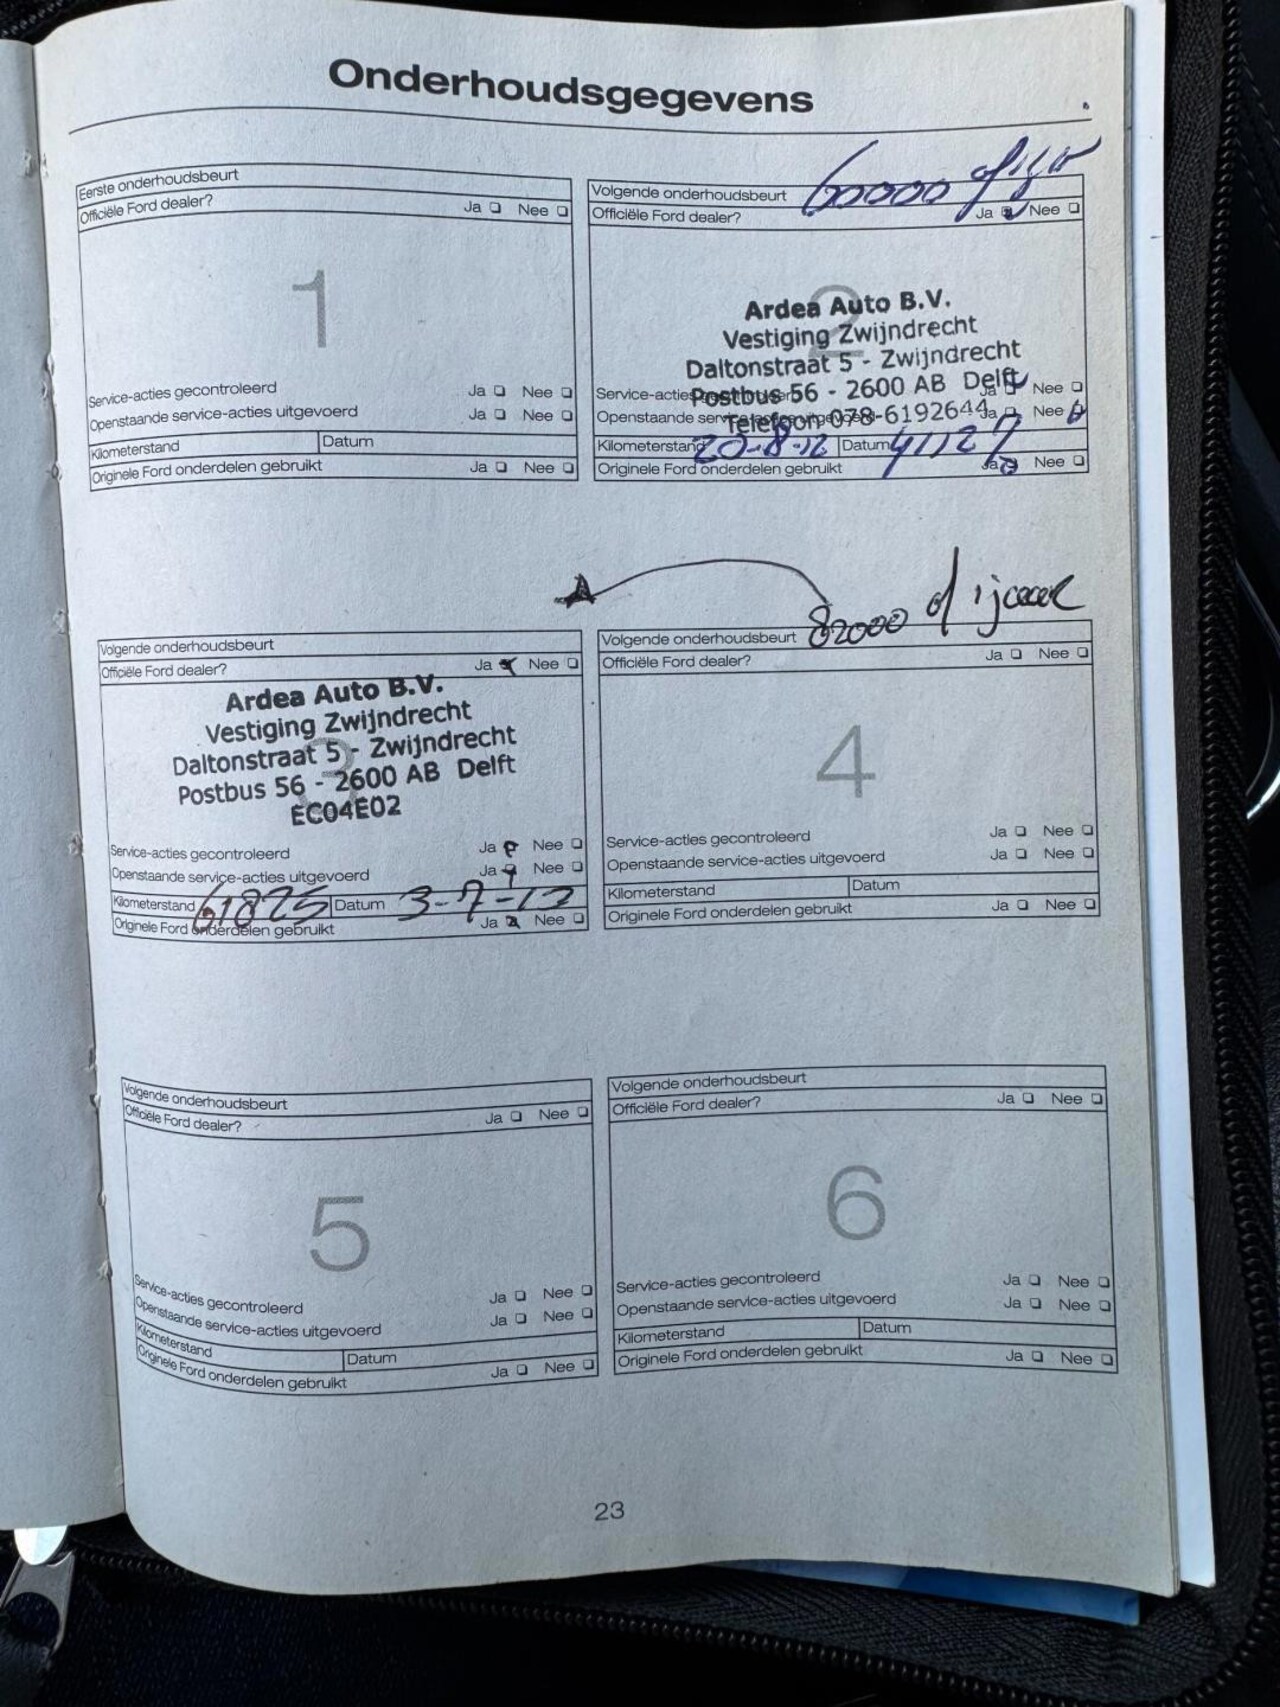 Onderhoudsgegevens
Eerste onderhoudsbeurt
Officiële Ford dealer? Ja Nee
1
Service-acties gecontroleerd Ja Nee
Openstaande service-acties uitgevoerd Ja Nee
Kilometerstand Datum
Originele Ford onderdelen gebruikt Ja Nee
Volgende onderhoudsbeurt 60000 of 1jr
Officiële Ford dealer? Ja Nee
2
Ardea Auto B.V.
Vestiging Zwijndrecht
Daltonstraat 5 - Zwijndrecht
Postbus 56 - 2600 AB Delft
Telefoon 078-6192644
Service-acties Ja Nee
Openstaande Ja Nee
Kilometerstand 20-8-12 Datum 41127
Originele Ford onderdelen gebruikt Ja Nee
Volgende onderhoudsbeurt
Officiële Ford dealer? Ja Nee
3
Ardea Auto B.V.
Vestiging Zwijndrecht
Daltonstraat 5 - Zwijndrecht
Postbus 56 - 2600 AB Delft
EC04E02
Service-acties gecontroleerd Ja Nee
Openstaande service-acties uitgevoerd Ja Nee
Kilometerstand 61825 Datum 3-7-13
Originele Ford onderdelen gebruikt Ja Nee
Volgende onderhoudsbeurt 82000 of 1j
Officiële Ford dealer? Ja Nee
4
Service-acties gecontroleerd Ja Nee
Openstaande service-acties uitgevoerd Ja Nee
Kilometerstand Datum
Originele Ford onderdelen gebruikt Ja Nee
Volgende onderhoudsbeurt
Officiële Ford dealer? Ja Nee
5
Service-acties gecontroleerd Ja Nee
Openstaande service-acties uitgevoerd Ja Nee
Kilometerstand Datum
Originele Ford onderdelen gebruikt Ja Nee
Volgende onderhoudsbeurt
Officiële Ford dealer? Ja Nee
6
Service-acties gecontroleerd Ja Nee
Openstaande service-acties uitgevoerd Ja Nee
Kilometerstand Datum
Originele Ford onderdelen gebruikt Ja Nee
23